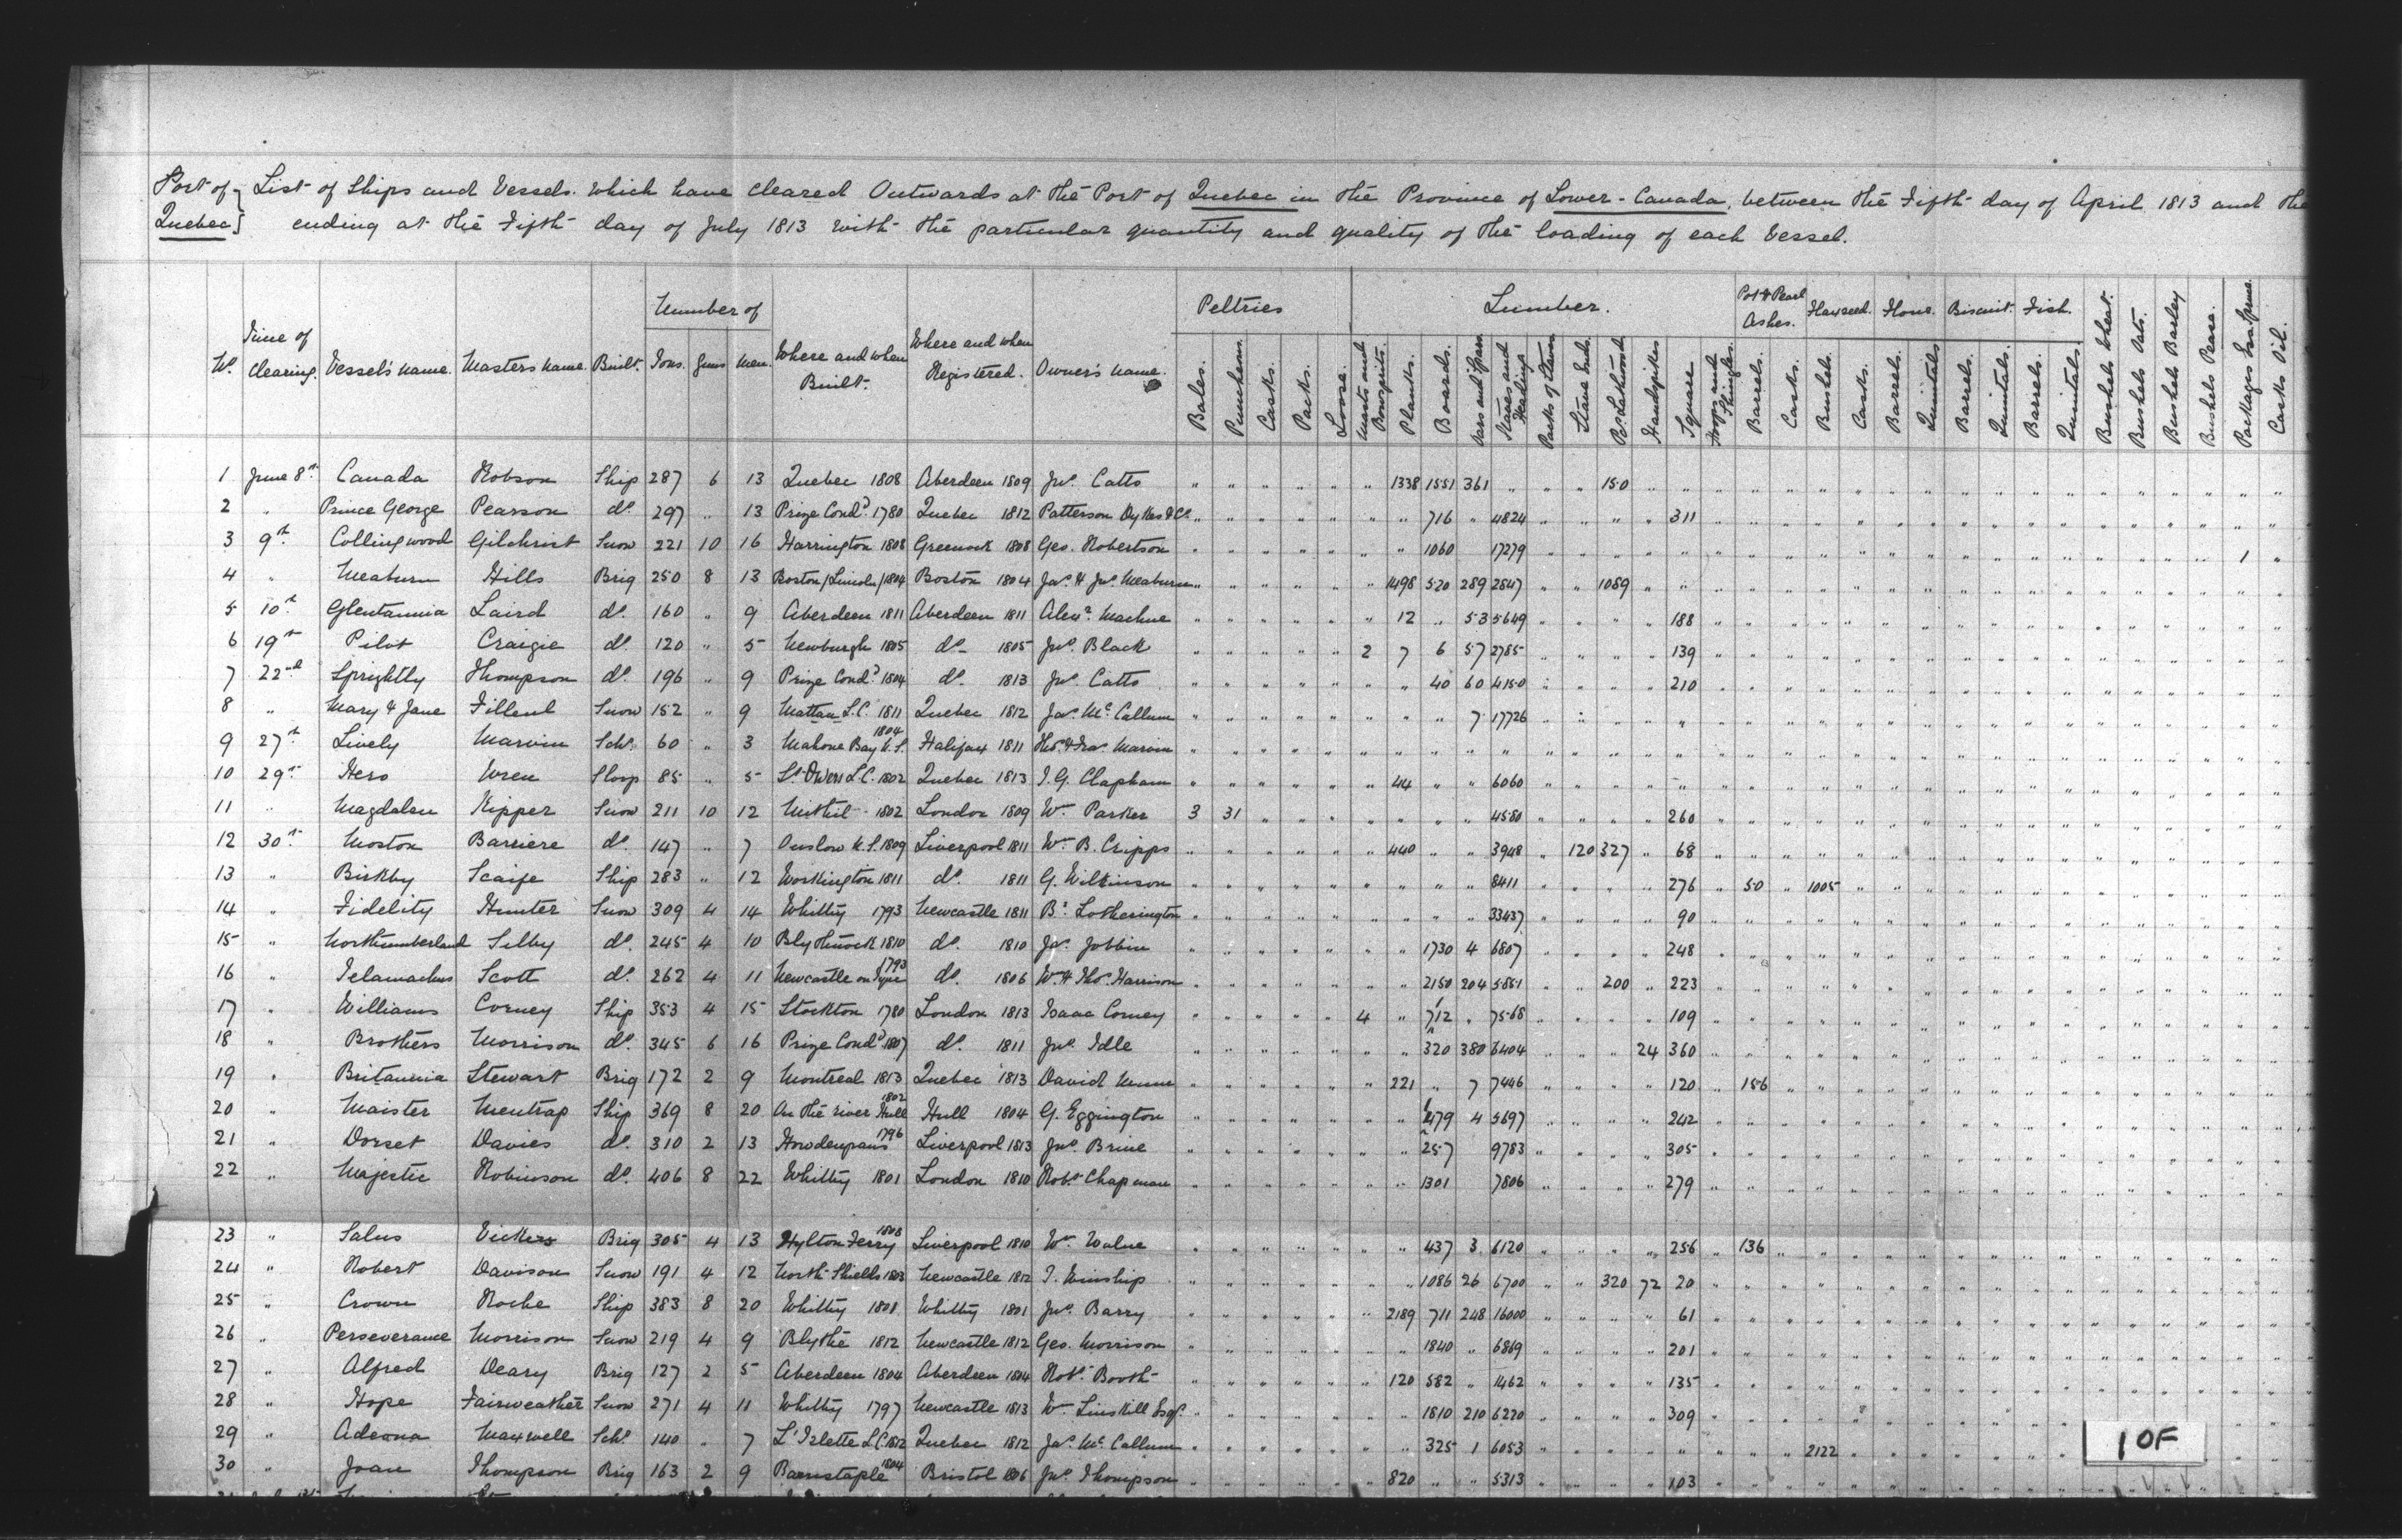 Port of } List of Ships and Vessels which have cleared Outwards at the Port of Quebec in the Province of Lower-Canada, between the Fifth day of April 1813 and the
Quebec } ending at the Fifth day of July 1813 with the particular quantity and quality of the loading of each Vessel.
Nº Time of Clearing. Vessel's name. Masters name. Built. Number of Tons. Guns Men. Where and when Built. Where and when Registered. Owner's name. Peltries Bales. Puncheons. Casks. Packs. Loose. Lumber. Masts and Bowsprits. Planks. Boards. Oars and Spars Staves and Heading Packs of Staves Stave Ends Ps. Lathwood Handspikes Square Hoops and Shingles. Pot & Pearl Ashes. Barrels. Casks. Flaxseed. Bushels. Casks. Flour. Barrels. Quintals Biscuit. Barrels. Quintals. Fish. Barrels. Quintals. Bushels Wheat. Bushels Oats. Bushels Barley Bushels Pease. Packages Casks Oil.
1 June 8th Canada Robson Ship 287 6 13 Quebec 1808 Aberdeen 1809 Jno. Catto 1338 1551 361 150
2 " Prince George Pearson do. 297 " 13 Prize Cond. 1780 Quebec 1812 Patterson Dykes & Co. 716 " 4824 311
3 9th Collingwood Gilchrist Snow 221 10 16 Harrington 1808 Greenock 1808 Geo. Robertson 1060 17279 1
4 " Meaburn Hills Brig 250 8 13 Boston /Lincoln/ 1804 Boston 1804 Jas. & Jno. Meaburn 1498 520 289 2847 1089
5 10th Glentannia Laird do. 160 " 9 Aberdeen 1811 Aberdeen 1811 Alexr. 12 " 53 5649 188
6 19th Pilot Craigie do. 120 " 5 Newburgh 1805 do. 1805 Jno. Black 2 7 6 57 2785 139
7 22nd Sprightly Thompson do. 196 " 9 Prize Cond. 1804 do. 1813 Jno. Catto 40 60 4150 210
8 " Mary & Jane Snow 152 " 9 Mattan L.C. 1811 Quebec 1812 Jas. McCallum 7 17726
9 27th Lively Marvin Schr. 60 " 3 Mahone Bay N.S. 1804 Halifax 1811 Thos. & Fras. Marvin
10 29th Hero Wren Sloop 85 " 5 St Owen L.C. 1802 Quebec 1813 J. G. Clapham 44 " " 6060
11 " Magdalen Kipper Snow 211 10 12 Methil 1802 London 1809 Wm. Parker 3 31 4580 260
12 30th Moston Barriere do. 147 " 7 Onslow N.S. 1809 Liverpool 1811 Wm. B. Cripps 440 " " 3948 120 327 68
13 " Birkby Scaife Ship 283 " 12 Workington 1811 do. 1811 G. Wilkinson 8411 276 50 1005
14 " Fidelity Hunter Snow 309 4 14 Whitby 1793 Newcastle 1811 Bt. Lotherington 33437 90
15 " Northumberland Selby do. 245 4 10 Blythnook 1810 do. 1810 Jas. Jobbin 1730 4 6807 248
16 " Telamachus Scott do. 262 4 11 Newcastle on Tyne 1793 do. 1806 Wm. & Thos. Harrison 2150 204 5851 200 223
17 " Williams Corney Ship 353 4 15 Stockton 1780 London 1813 Isaac Corney 4 " 712 " 7568 109
18 " Brothers Morrison do. 345 6 16 Prize Cond. 1807 do. 1811 Jno. Idle 320 380 6404 24 360
19 " Britannia Stewart Brig 172 2 9 Montreal 1813 Quebec 1813 David Munn 221 " 7 7446 120 156
20 " Maister Mentrap Ship 369 8 20 On the river Hull 1802 Hull 1804 G. Eggington 479 4 5697 242
21 " Dorset Davies do. 310 2 13 Howdenpans 1796 Liverpool 1813 Jno. Brine 257 9783 305
22 " Majestic Robinson do. 406 8 22 Whitby 1801 London 1810 Robt. Chapman 1301 7806 279
23 " Salus Vickers Brig 305 4 13 Hylton Ferry 1808 Liverpool 1810 Wm. 437 3 6120 256 136
24 " Robert Davison Snow 191 4 12 North Shields 1803 Newcastle 1812 T. Winship 1086 26 6700 320 72 20
25 " Crown Roche Ship 383 8 20 Whitby 1801 Whitby 1801 Jno. Barry 2189 711 248 16000 61
26 " Perseverance Morrison Snow 219 4 9 Blythe 1812 Newcastle 1812 Geo. Morrison 1840 " 6869 201
27 " Alfred Deary Brig 127 2 5 Aberdeen 1804 Aberdeen 1804 Robt. Booth 120 582 " 1462 135
28 " Hope Fairweather Snow 271 4 11 Whitby 1797 Newcastle 1813 Wm. Linskill Esqr. 1810 210 6220 309
29 " Adeona Maxwell Schr. 140 " 7 L'Islette L.C. 1812 Quebec 1812 Jas. McCallum 325 1 6053 2122
30 " Joan Thompson Brig 163 2 9 Barnstaple 1804 Bristol 1806 Jno. Thompson 820 " " 5313 103
1 OF